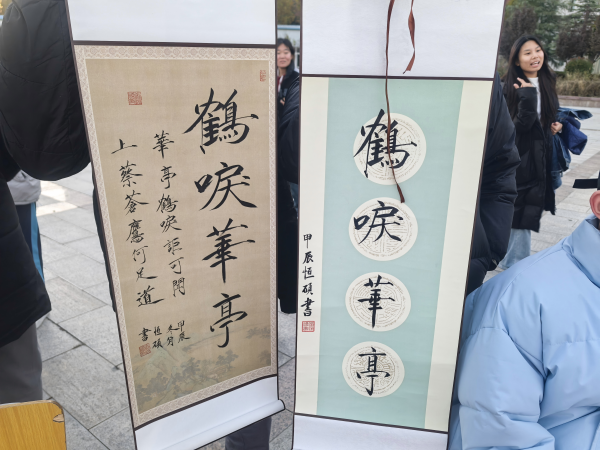 鶴唳華亭
華亭鶴唳詎可聞
上蔡蒼鷹何足道
甲辰
冬月
恒碩
書
鶴
唳
華
亭
甲辰恒碩書